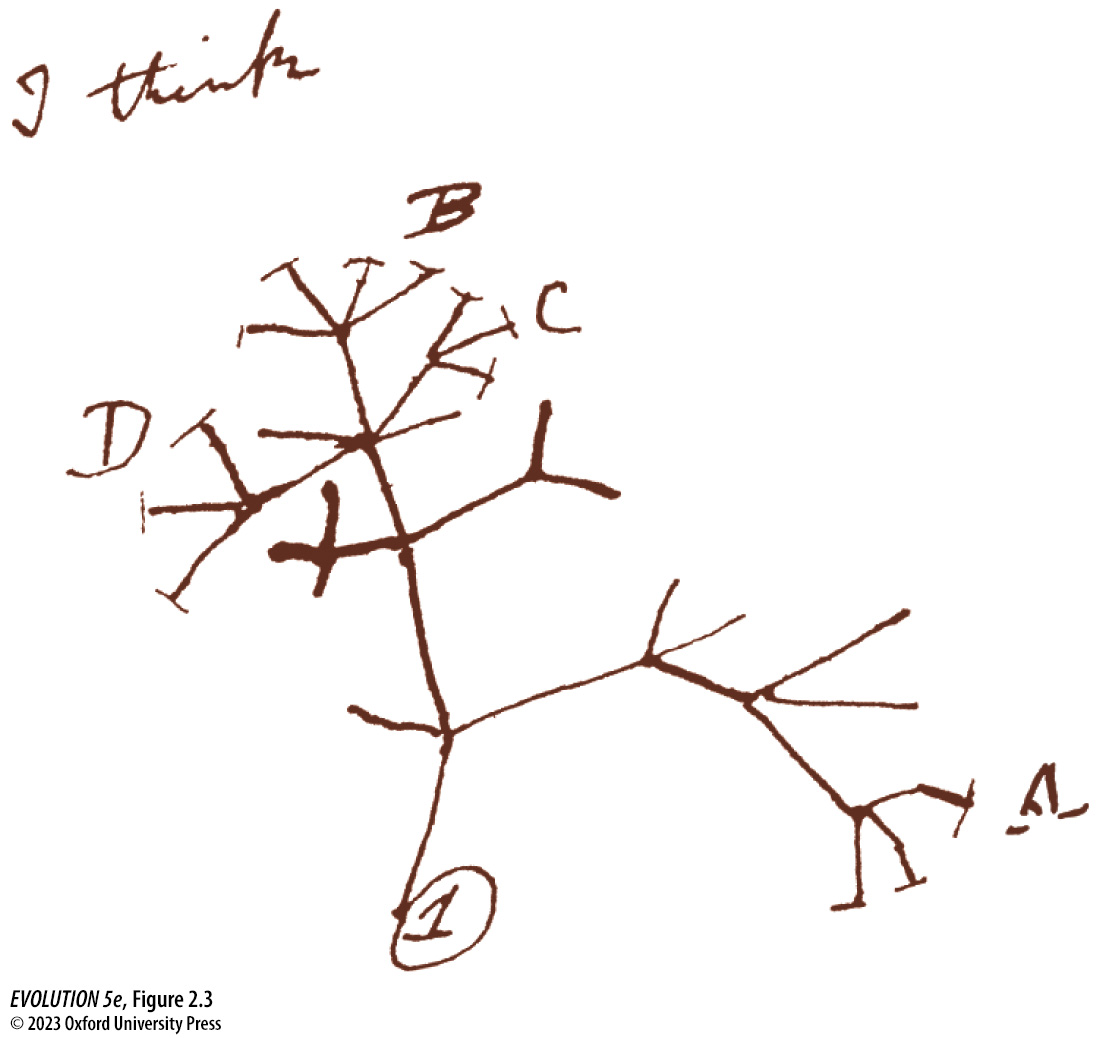 I think
B
C
D
A
1
EVOLUTION 5e, Figure 2.3
© 2023 Oxford University Press